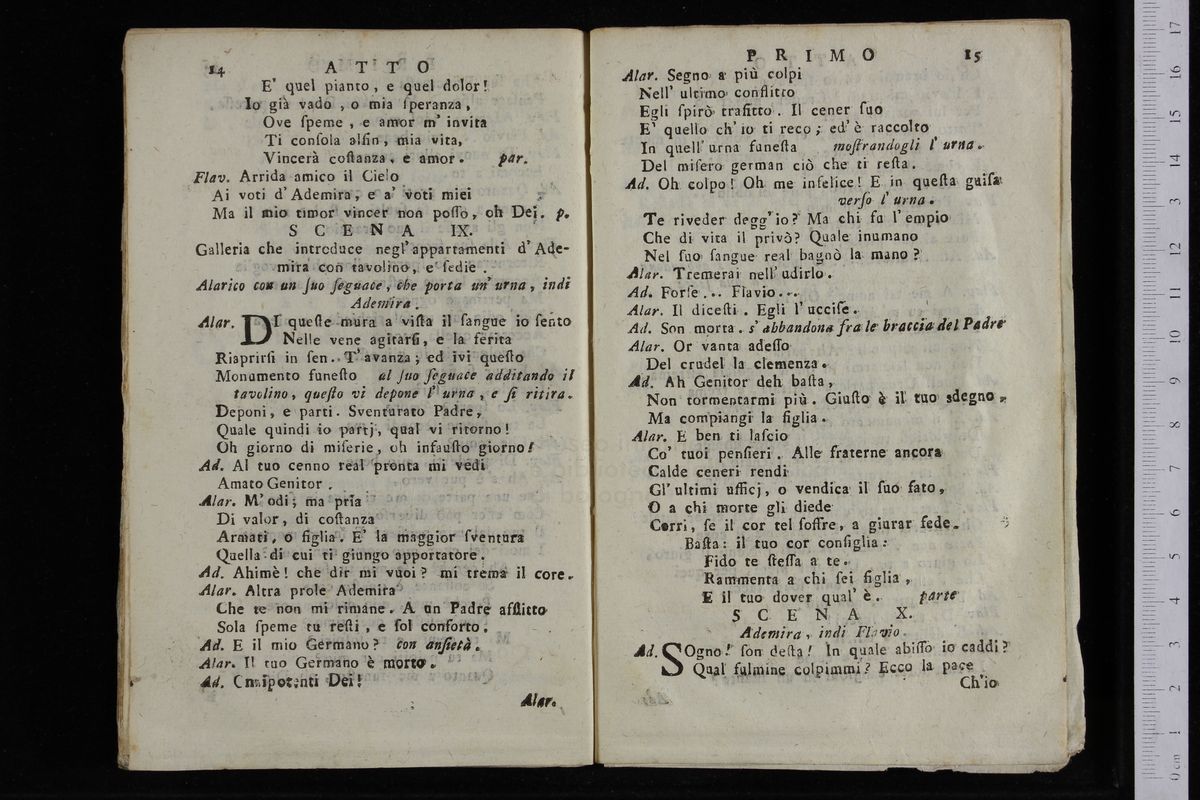 14 ATTO
E' quel pianto, e quel dolor!
Io già vado, o mia ſperanza,
Ove ſpeme, e amor m' invita
Ti conſola alfin, mia vita,
Vincerà coſtanza, e amor. par.
Flav. Arrida amico il Cielo
Ai voti d' Ademira, e a' voti miei
Ma il mio timor vincer non poſſo, oh Dei. p.
SCENA IX.
Galleria che introduce negl' appartamenti d' Ade-
mira con tavolino, e ſedie.
Alarico con un ſuo ſeguace, che porta un' urna, indi
Ademira.
Alar. DI queſte mura a viſta il ſangue io ſento
Nelle vene agitarſi, e la ferita
Riaprirſi in ſen. T' avanza; ed ivi queſto
Monumento funeſto al ſuo ſeguace additando il
tavolino, queſto vi depone l' urna, e ſi ritira.
Deponi, e parti. Sventurato Padre,
Quale quindi io partj, qual vi ritorno!
Oh giorno di miſerie, oh infauſto giorno!
Ad. Al tuo cenno real pronta mi vedi
Amato Genitor.
Alar. M' odi; ma pria
Di valor, di coſtanza
Armati, o figlia. E' la maggior ſventura
Quella di cui ti giungo apportatore.
Ad. Ahimè! che dir mi vuoi? mi trema il core.
Alar. Altra prole Ademira
Che te non mi rimane. A un Padre afflitto
Sola ſpeme tu reſti, e ſol conforto.
Ad. E il mio Germano? con anſietà.
Alar. Il tuo Germano è morto.
Ad. Omnipotenti Dei!
Alar.
PRIMO 15
Alar. Segno a più colpi
Nell' ultimo conflitto
Egli ſpirò trafitto. Il cener ſuo
E' quello ch' io ti reco; ed' è raccolto
In quell' urna funeſta moſtrandogli l' urna.
Del miſero german ciò che ti reſta.
Ad. Oh colpo! Oh me infelice! E in queſta guiſa
verſo l' urna.
Te riveder degg' io? Ma chi fu l' empio
Che di vita il privò? Quale inumano
Nel ſuo ſangue real bagnò la mano?
Alar. Tremerai nell' udirlo.
Ad. Forſe... Flavio...
Alar. Il diceſti. Egli l' ucciſe.
Ad. Son morta. s' abbandona fra le braccia del Padre
Alar. Or vanta adeſſo
Del crudel la clemenza.
Ad. Ah Genitor deh baſta,
Non tormentarmi più. Giuſto è il tuo sdegno,
Ma compiangi la figlia.
Alar. E ben ti laſcio
Co' tuoi penſieri. Alle fraterne ancora
Calde ceneri rendi
Gl' ultimi ufficj, o vendica il ſuo fato,
O a chi morte gli diede
Corri, ſe il cor tel ſoffre, a giurar fede.
Baſta: il tuo cor conſiglia:
Fido te ſteſſa a te.
Rammenta a chi ſei figlia,
E il tuo dover qual' è. parte
SCENA X.
Ademira, indi Flavio.
Ad. SOgno! ſon deſta! In quale abiſſo io caddi?
Qual fulmine colpimmi? Ecco la pace
Ch'io